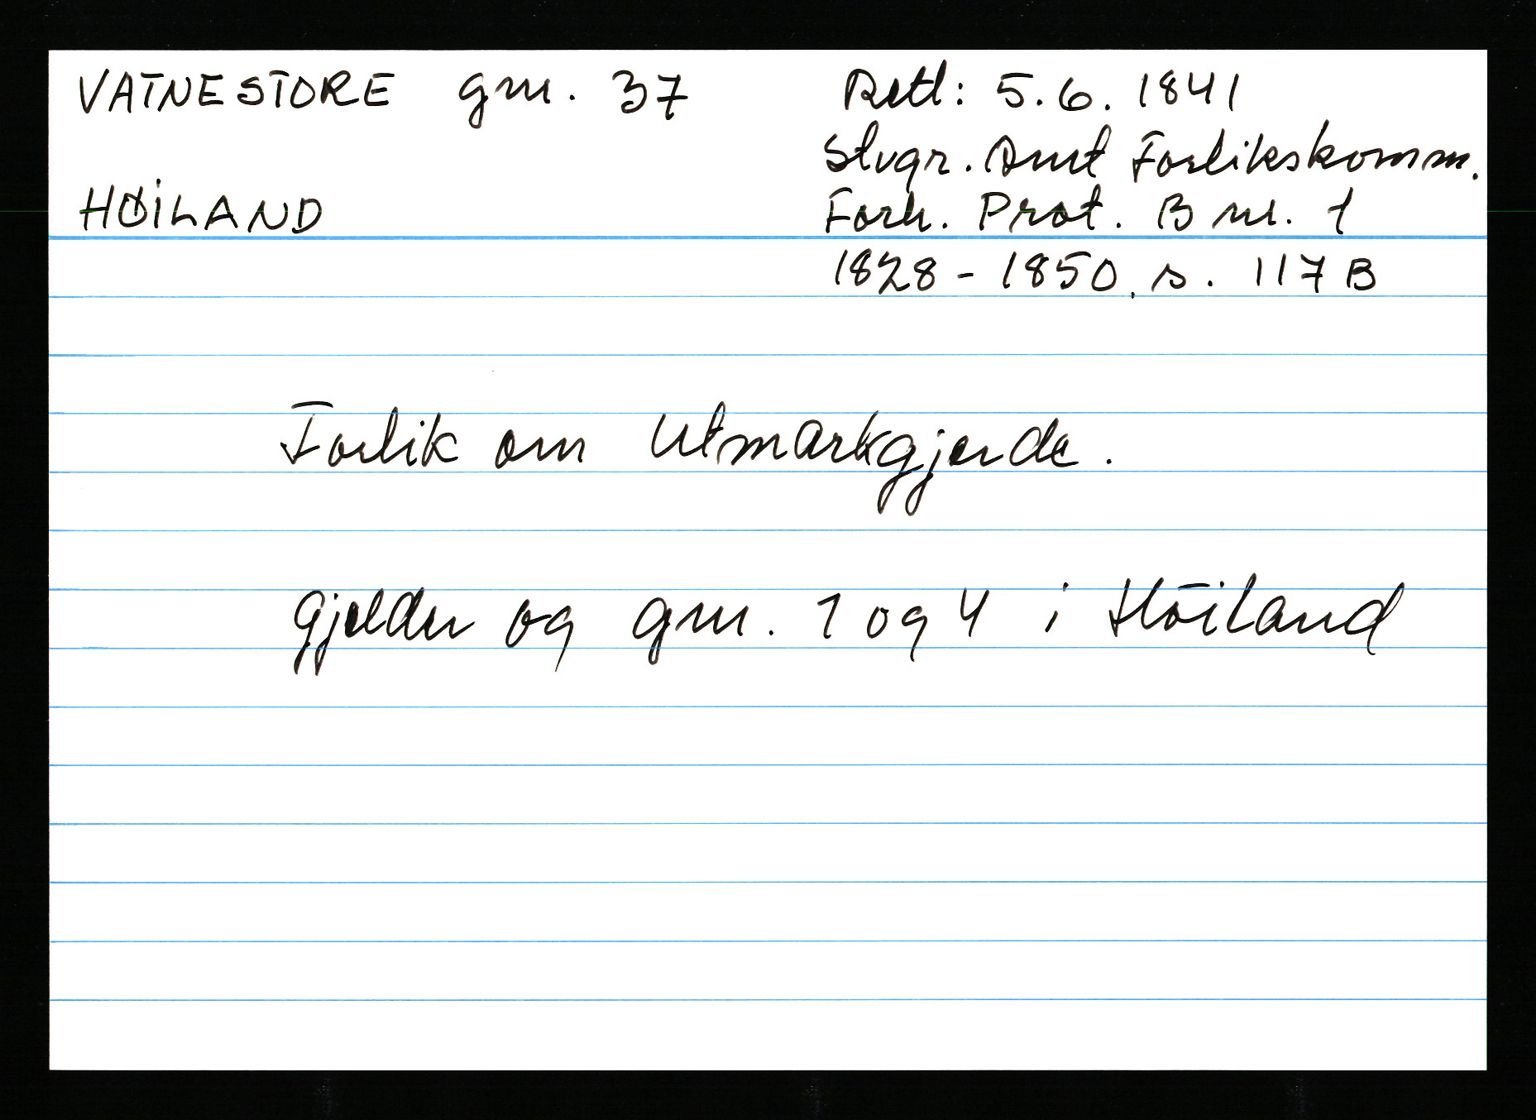 VATNE STORE gnr. 37
HØILAND
Avtl: 5.6.1841
Stvgr. Amt Forlikskomm.
Forh. Prot. B nr. 1
1828 - 1850, s. 117 B
Forlik om Utmarkgjerde.
Gjelder og gnr. 1 og 4 i Høiland